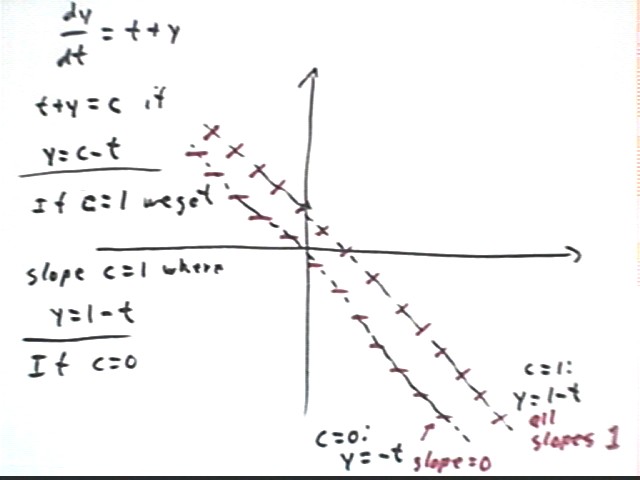 dy/dt = t+y
t+y = c if
y = c-t
If c=1 we get
slope c=1 where
y = 1-t
If c=0
c=1:
y=1-t
all
slopes 1
c=0:
y=-t
slope=0